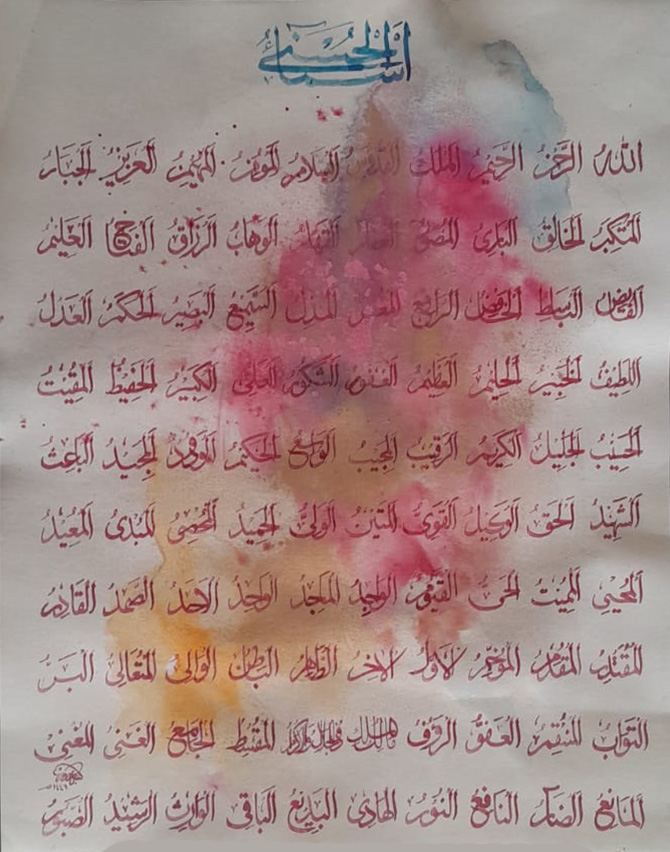 اسماء الحسنى
الله الرحمن الرحيم الملك القدوس السلام المؤمن المهيمن العزيز الجبار
المتكبر الخالق البارئ المصور الغفار القهار الوهاب الرزاق الفتاح العليم
القابض الباسط الخافض الرافع المعز المذل السميع البصير الحكم العدل
اللطيف الخبير الحليم العظيم الغفور الشكور العلى الكبير الحفيظ المقيت
الحسيب الجليل الكريم الرقيب المجيب الواسع الحكيم الودود المجيد الباعث
الشهيد الحق الوكيل القوى المتين الولى الحميد المحصى المبدئ المعيد
المحيي المميت الحى القيوم الواجد الماجد الواحد الاحد الصمد القادر
المقتدر المقدم المؤخر الاول الاخر الظاهر الباطن الوالى المتعالى البر
التواب المنتقم العفو الرؤف مالك الملك ذو الجلال والاكرام المقسط الجامع الغنى المغنى
المانع الضار النافع النور الهادى البديع الباقى الوارث الرشيد الصبور